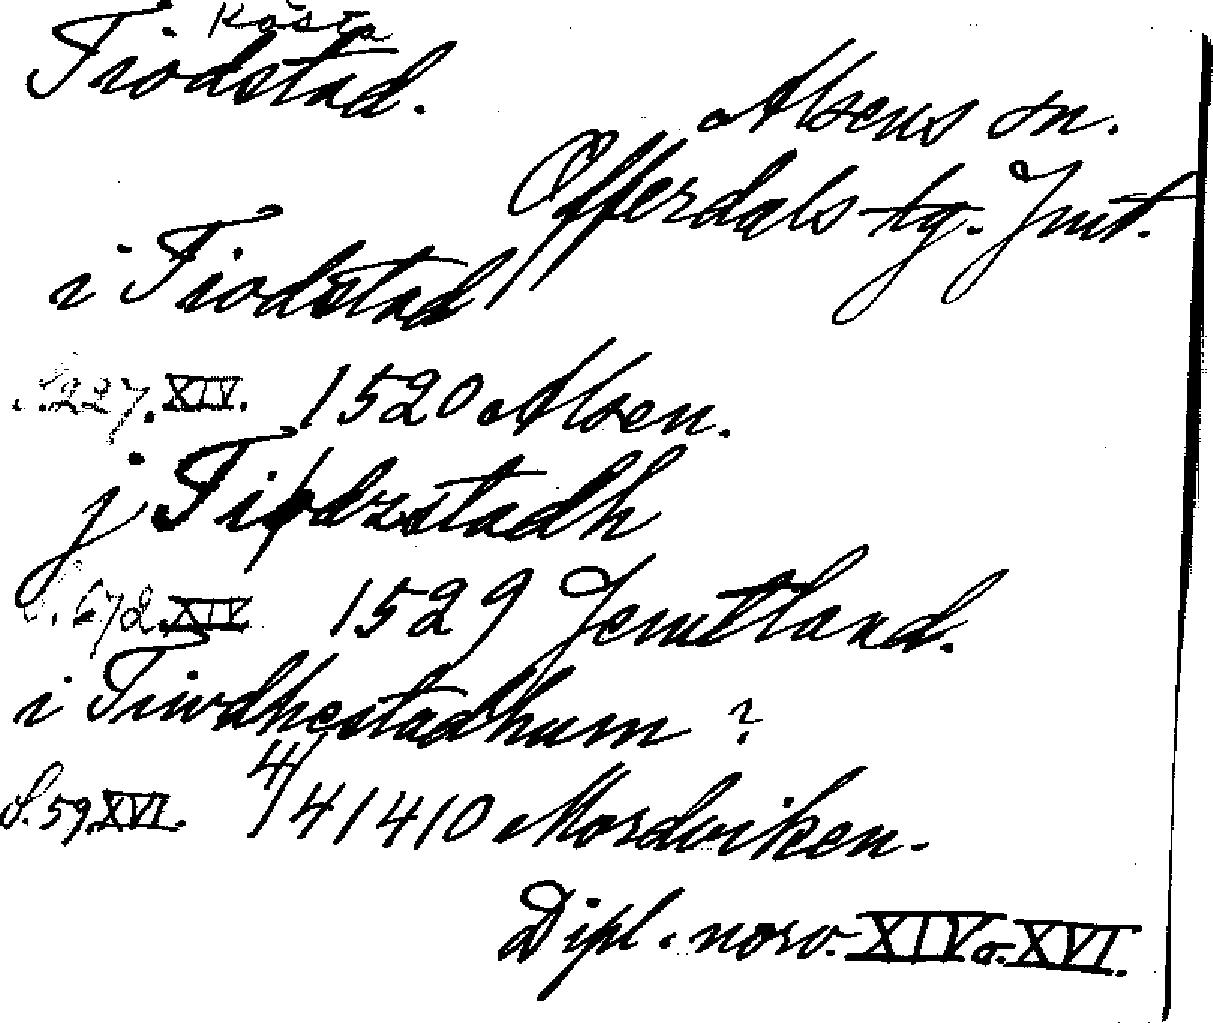 Kösta
Tiodstad.
Alsens sn.
Offerdals tg. Jmt.
i Tiodstad
S. 227. XIV. 1520 Alsen.
j Tiodzstadh
S. 672 XIV 1529 Jemtland.
i Tiwdhestadhum ?
S. 59. XVI. 4/4 1410 Mordviken.
Dipl. norv. XIV o. XVI.